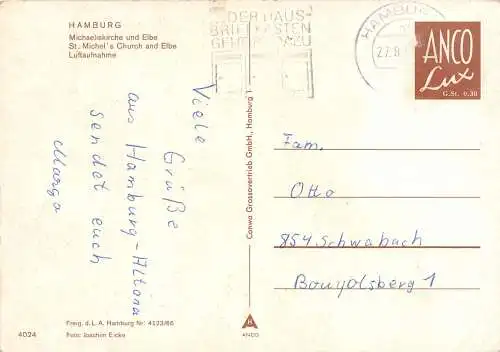 HAMBURG
Michaeliskirche und Elbe
St. Michel's Church and Elbe
Luftaufnahme
DER HAUS-
BRIEFKASTEN
GEHÖRT DAZU
HAMBURG
27.8
ANCO
Lux
G.St. 0.30
Viele
Grüße
aus Hamburg-Altona
sendet euch
Margo
Conwa Grossovertrieb GmbH., Hamburg 1
Fam.
Otto
854 Schwabach
1
Freig. d. L. A. Hamburg Nr: 4123/66
4024
Foto: Joachim Eicke
ANCO